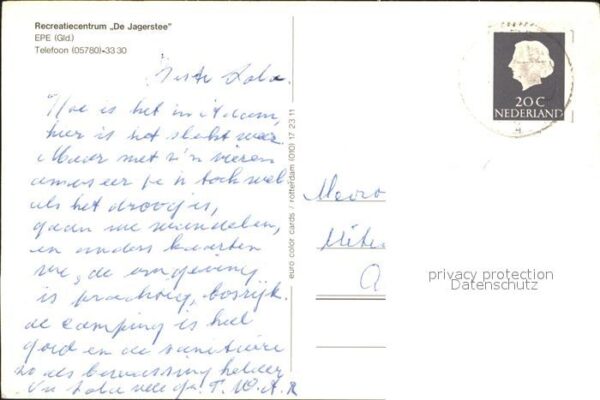 Recreatiecentrum „De Jagerstee"
EPE (Gld.)
Telefoon (05780)-33 30
Beste Loba.
Hoe is het in A'dam,
hier is het slecht weer
Maar met z'n vieren
amuseer je je toch wel
als het droog is,
gaan we wandelen,
en anders kaarten
we, de omgeving
is prachtig, bosrijk.
de camping is heel
goed en de sanitaire
zo als bewassing helder
Nu Loba vele gr. T. W. A. R
euro color cards / rotterdam (010) 17 23 11
20 C
NEDERLAND
Mevro
A
privacy protection
Datenschutz